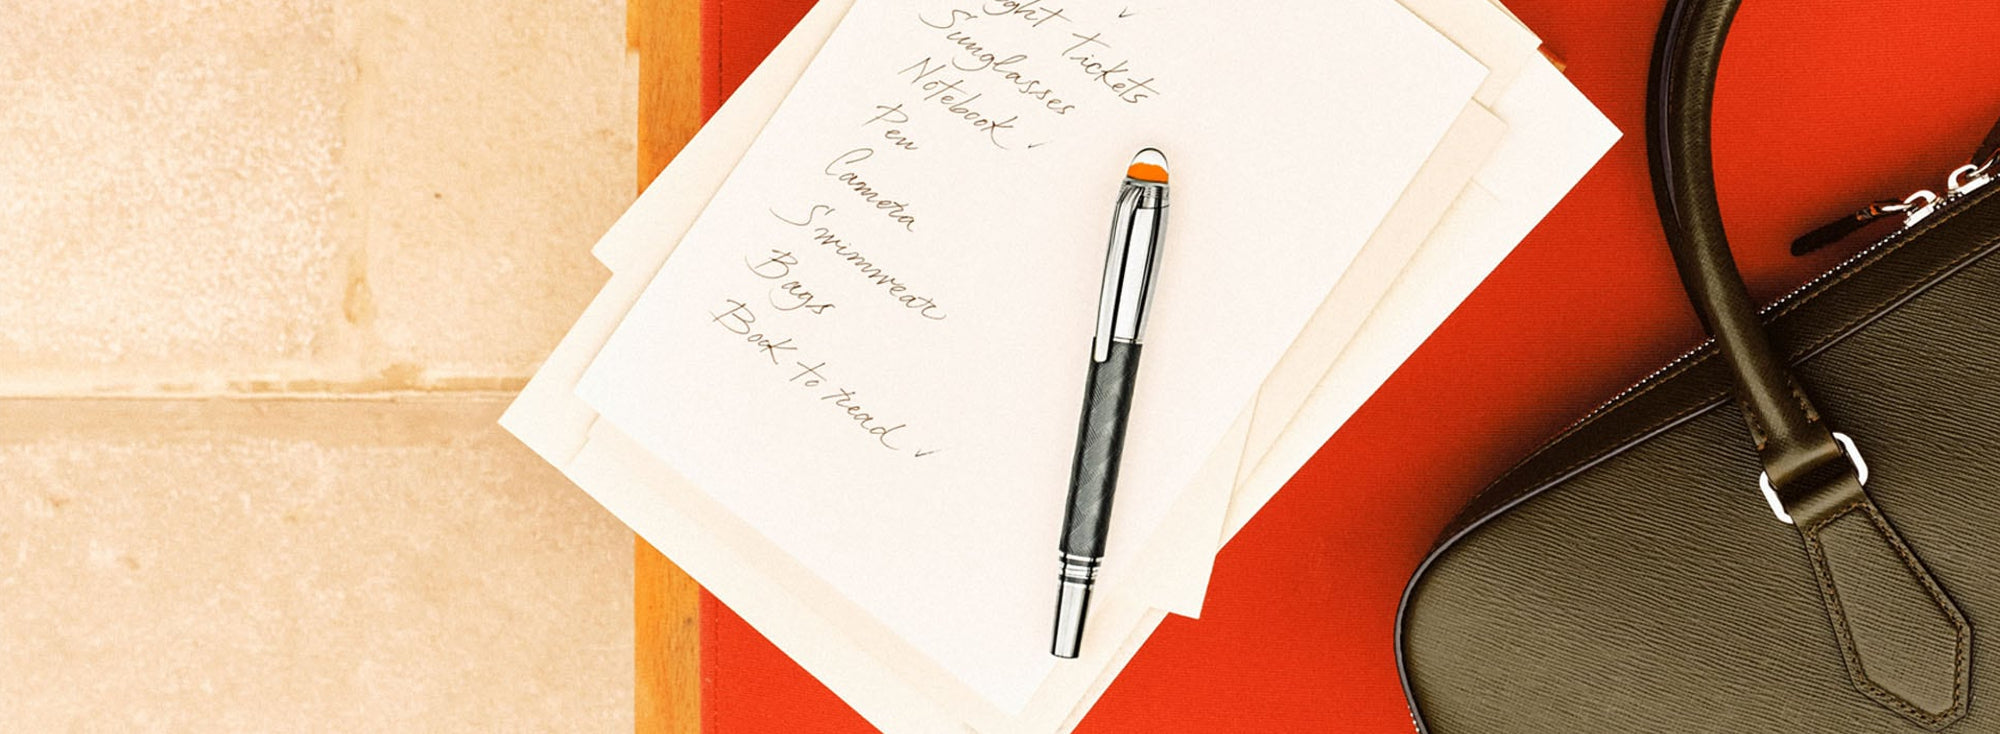 ght tickets
Sunglasses
Notebook ✓
Pen
Camera
Swimwear
Bags
Book to read ✓